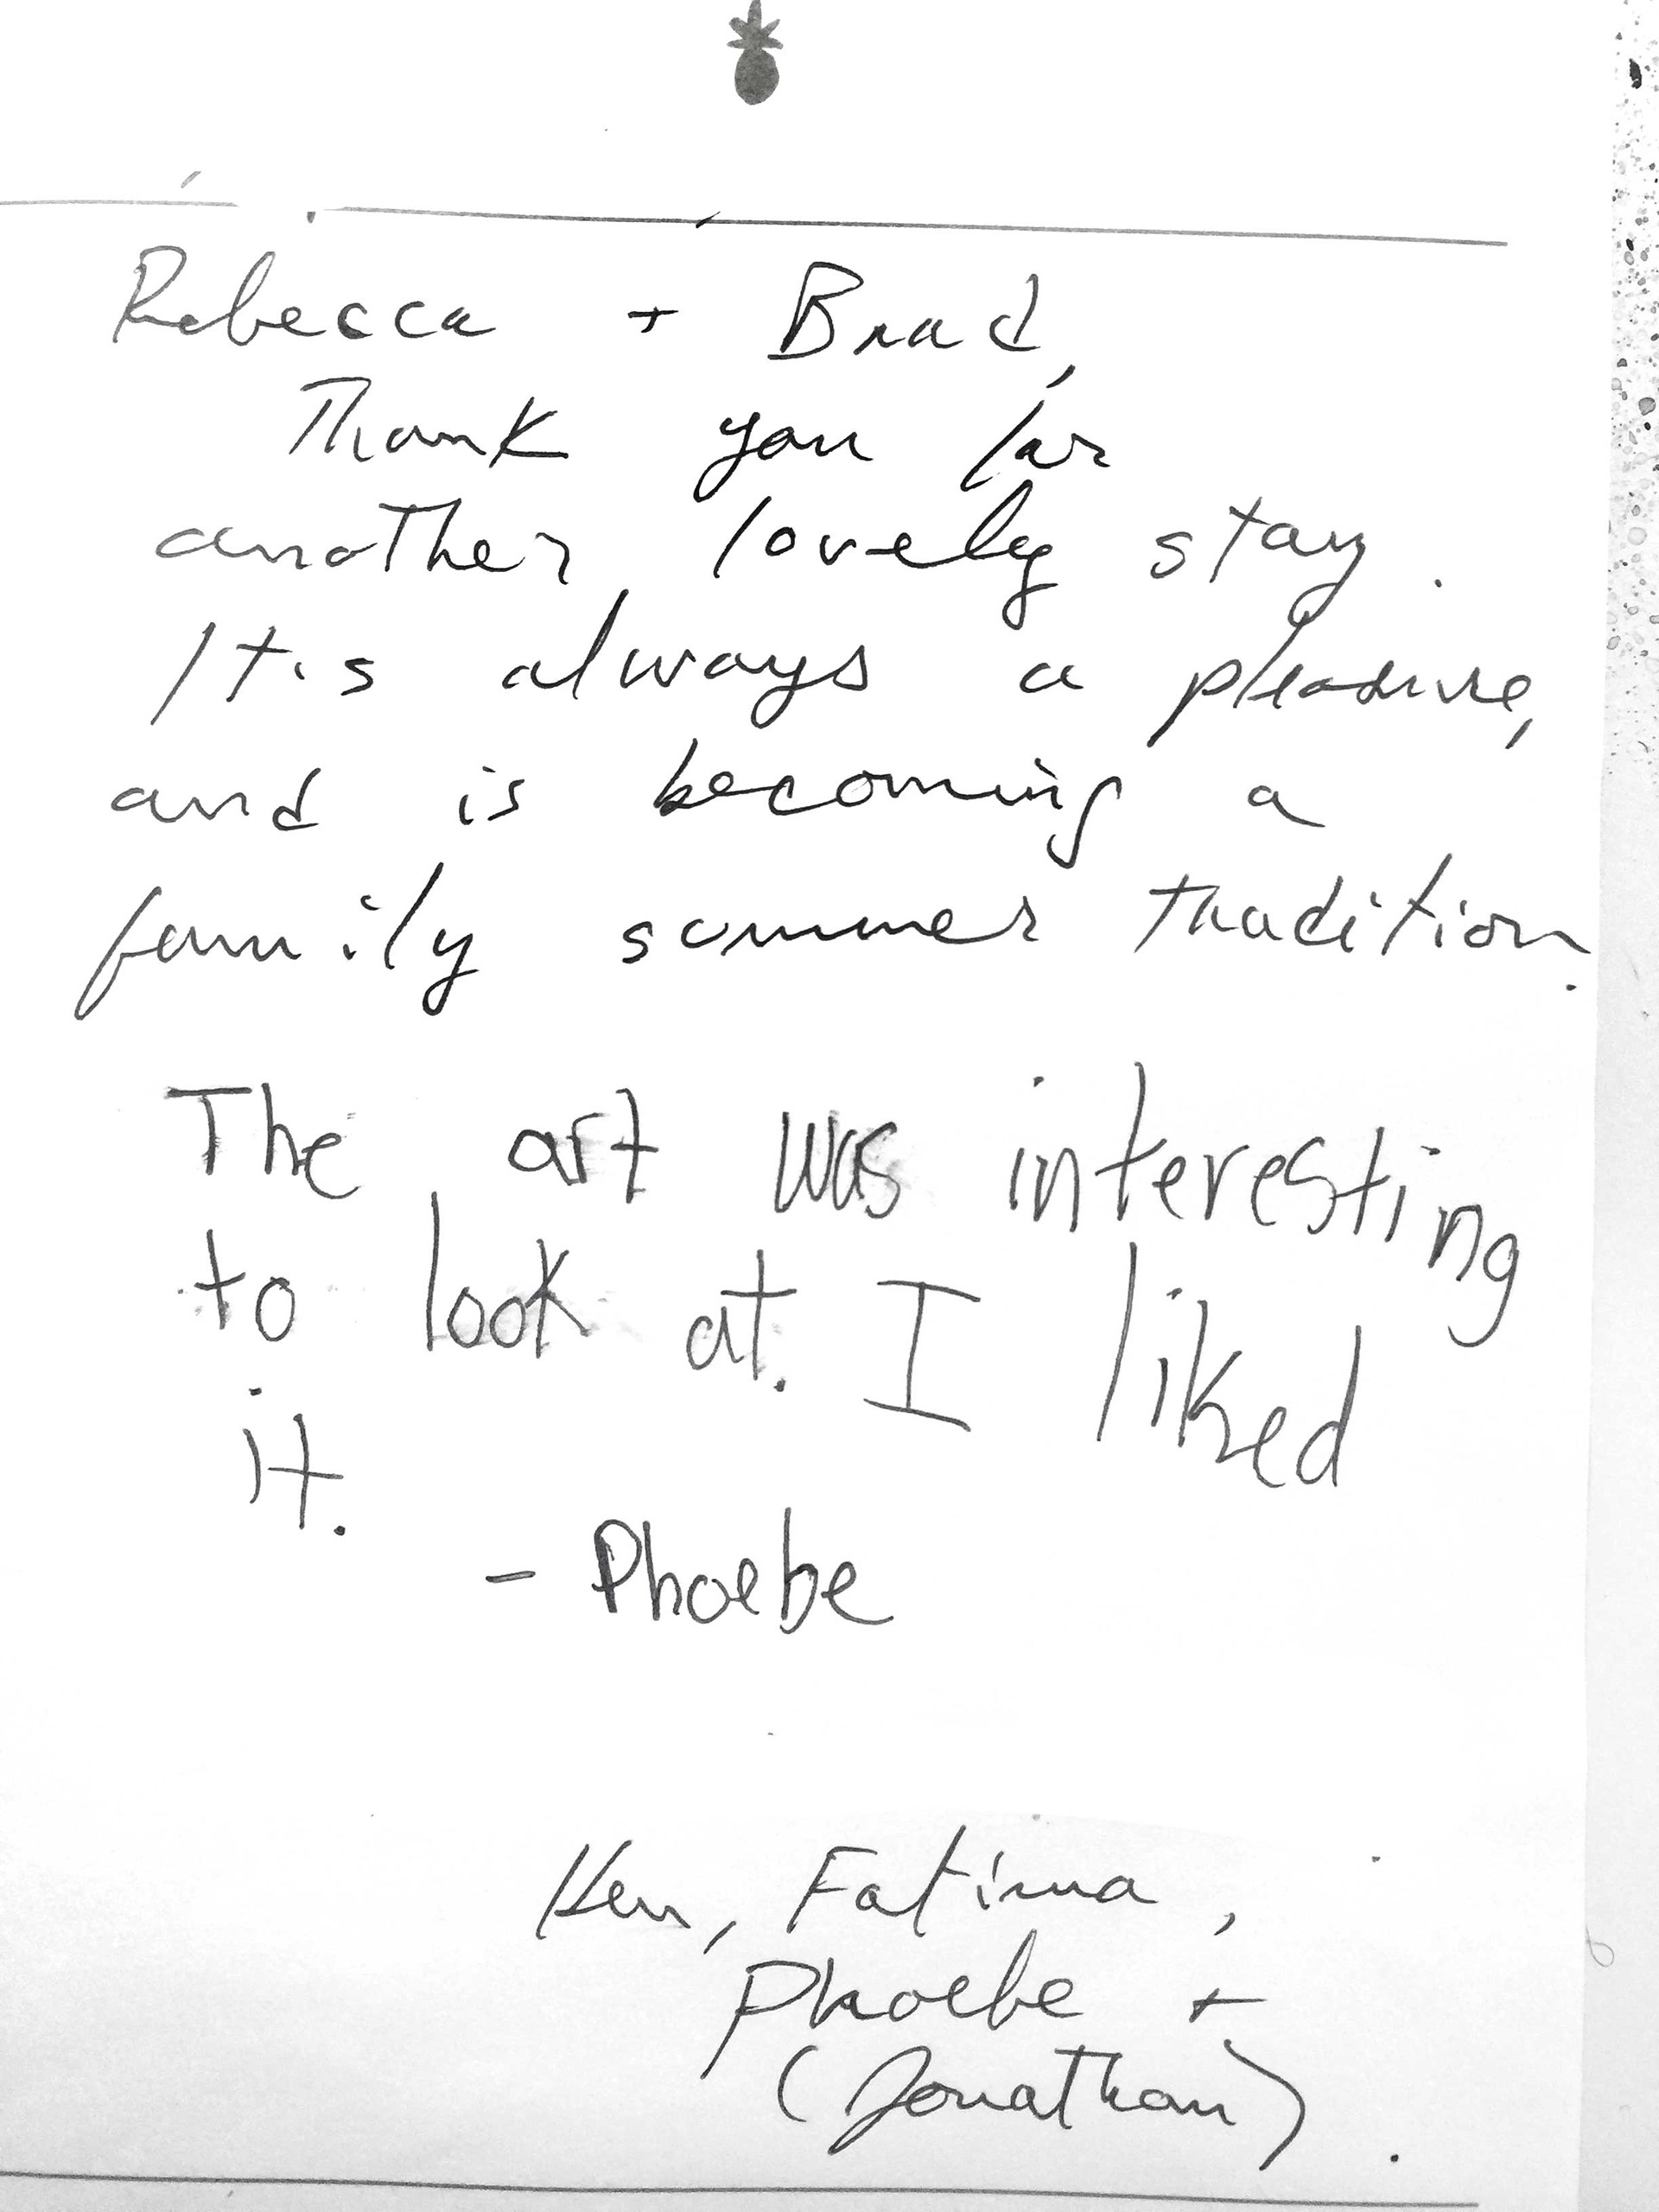 Rebecca + Brad,
Thank you for
another lovely stay.
It's always a pleasure,
and is becoming a
family summer tradition.
The art was interesting
to look at. I liked
it.
- Phoebe
Ken, Fatima,
Phoebe +
(Jonathan).